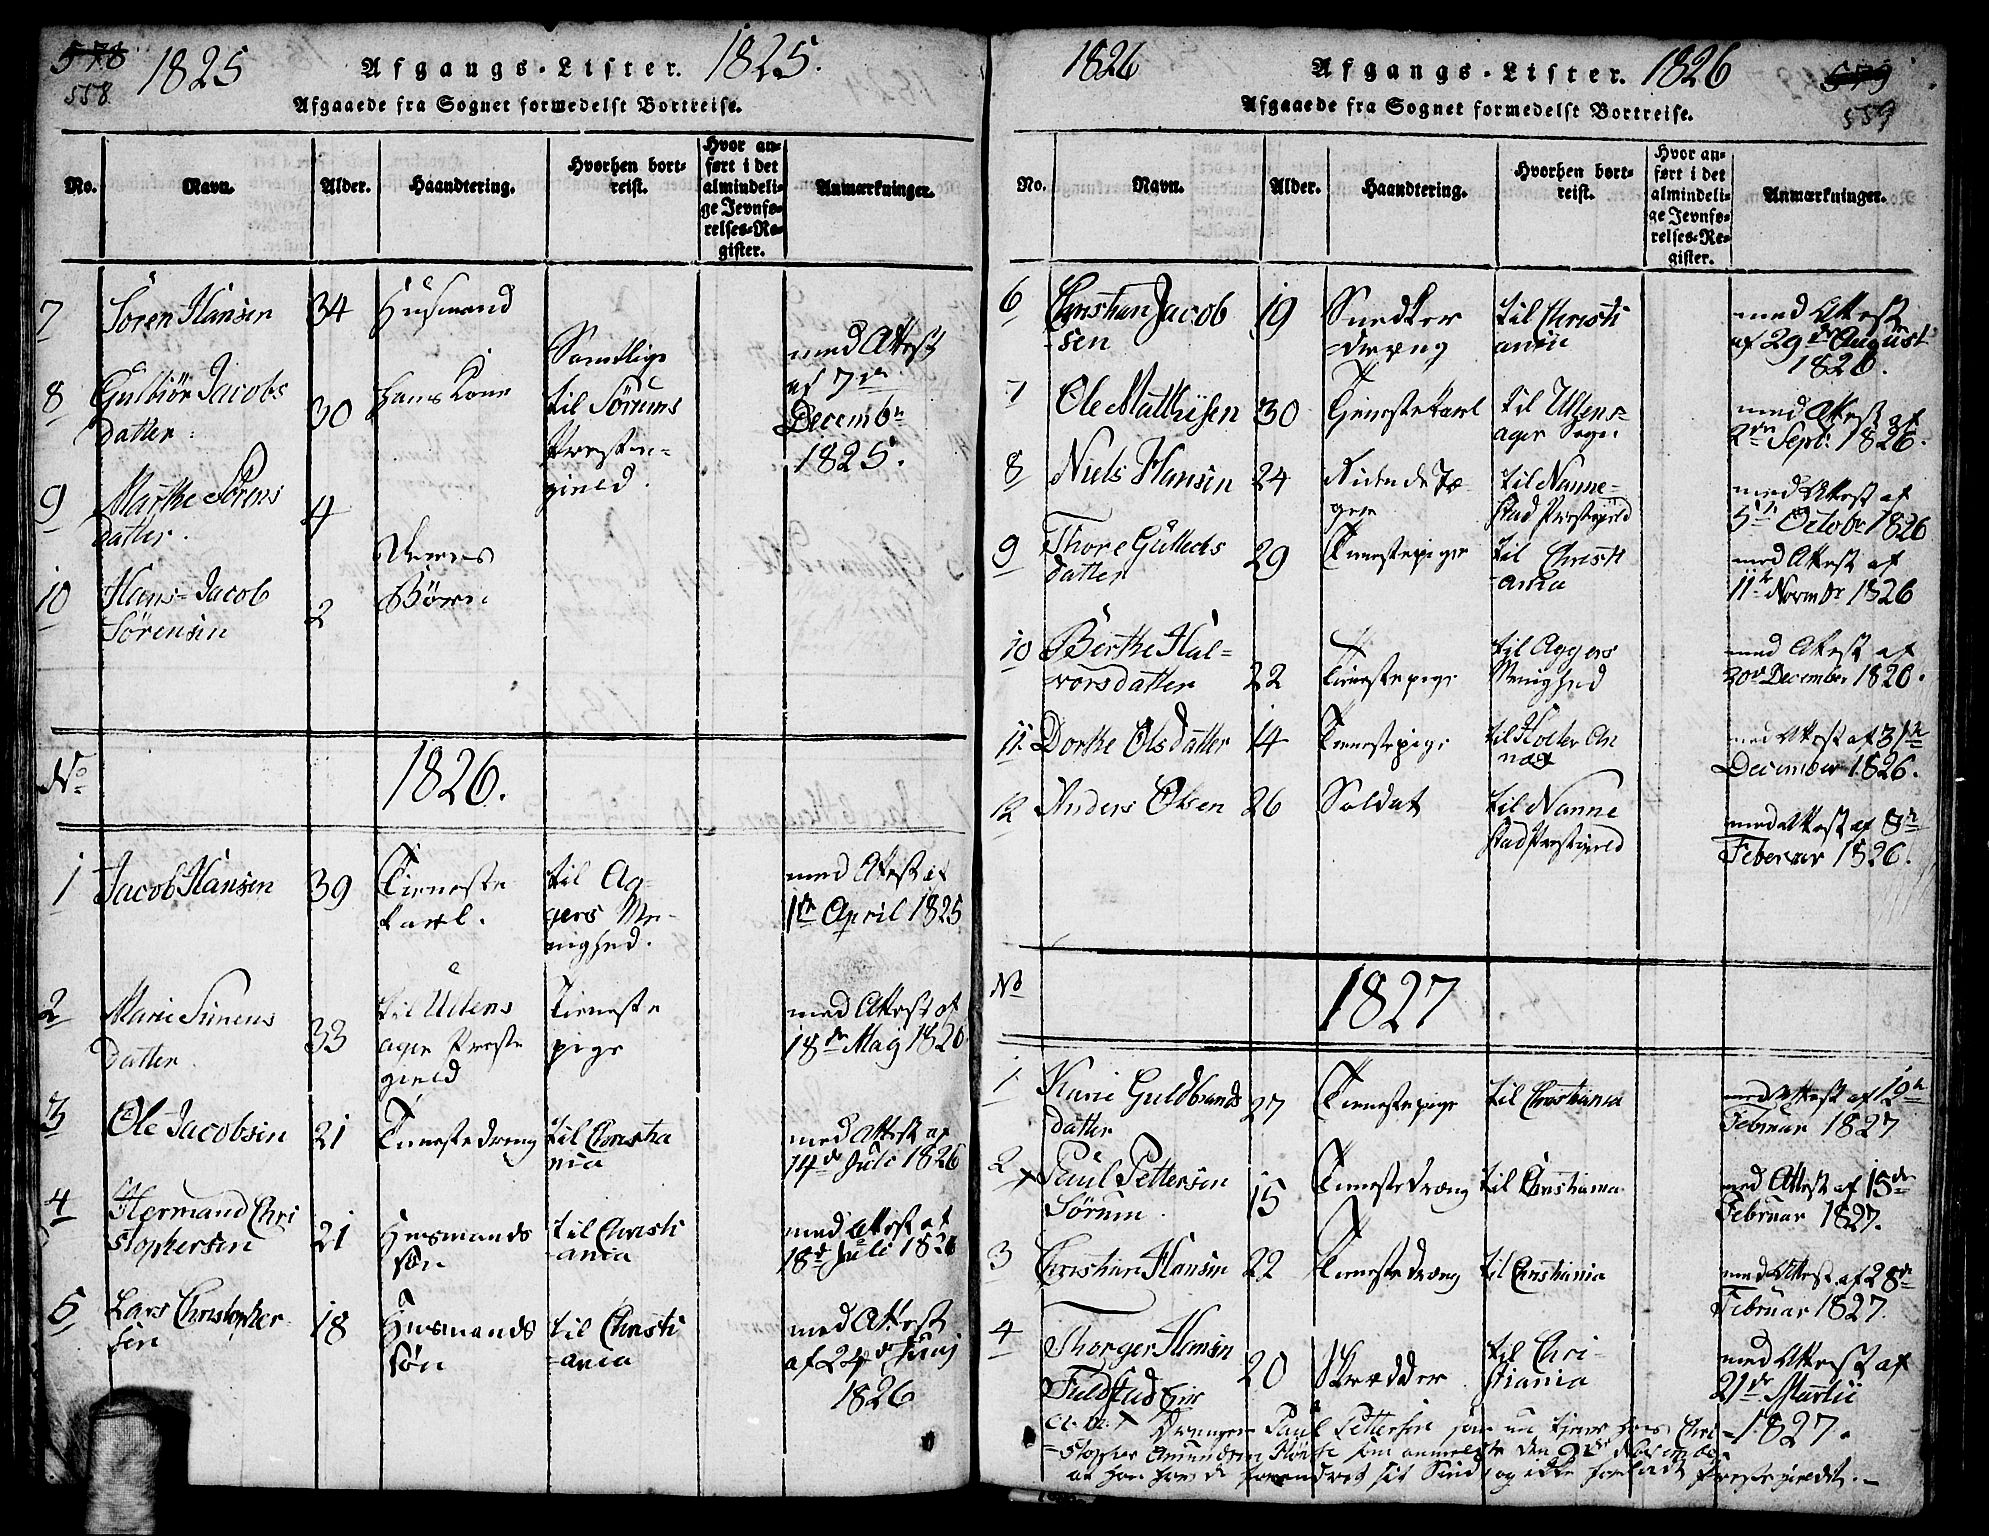 578
558
1825
Afgangs-Lister.
1825.
Afgaaede fra Sognet formedelst Bortreise.
No.
Navn.
Alder.
Haandtering.
Hvorhen bort-
reist.
Hvor an-
ført i det
almindeli-
ge Jevnfø-
relses-Re-
gister.
Anmærkninger.
7 Søren Hansen 34 Huusmand
8 Gulbiør Jacobs
datter. 30 hans Kone
9 Marthe Sørens
datter. 4
10 Hans-Jacob
Sørensen 2
Deres
Børn
Samtlige
til Sørums
Præste-
gield.
med Attest
af 7de
Decembr
1825.
No 1826.
1 Jacob Hansen 39 Tieneste
karl.
til Ag-
gers Me-
nighed.
med Attest af
1te April 1825
2 Marie Simens
datter. 33
til Ullens
ager Præste
gield
Tieneste
pige
med Attest af
18de Maij 1826
3 Ole Jacobsen 21 Tienestedreng
til Christia
nia
med Attest af
14de Juli 1826
4 Hermand Chri
stophersen 21 Huusmands
søn
til Christi
-ania
med Attest af
18de Juli 1826
5 Lars Christopher
sen 18 Huusmands
søn
til Christi
-ania
med Attest
af 24de Junij
1826
1826
Afgangs-Lister.
1826
579
559
Afgaaede fra Sognet formedelst Bortreise.
No.
Navn.
Alder.
Haandtering.
Hvorhen bort-
reist.
Hvor an-
ført i det
almindeli-
ge Jevnfø-
relses-Re-
gister.
Anmærkninger.
6 Christian Jacob
-sen 19 Snedker
-dreng
til Christi
ania
med Attest
af 29de August
1826.
7 Ole Mathisen 30 Tienestekarl
til Ullens-
ager Sogn
med Attest af
2den Septr 1826.
8 Niels Hansen 24 Ridende Jæ-
ger
til Nanne-
stad Præstegield
med Attest af
5te Octobr 1826
9 Thore Gullechs
datter 29 Tienestepige
til Christi
-ania
med Attest af
11te Novembr 1826
10 Berthe Hal-
-vorsdatter 22 Tienestepige
til Aggers
Menighed
med Attest af
30de December 1826.
11 Dorthe Olsdatter 14 Tienestepige
til Holter An
nex
med Attest af 31te
December 1826.
12 Anders Olsen 26 Soldat
til Nanne
stad Præstegield
med Attest af 8de
Februar 1826.
No 1827
1 Karie Guldbrands
datter 27 Tienestepige
til Christiania
med Attest af 19de
Februar 1827
2 Paul Pettersen
Sørum. 15 Tienestedreng
til Christiania
med Attest af 15de
Februar 1827.
3 Christian Hansen 22 Tienestedreng
til Christiania
med Attest af 28de
Februar 1827.
4 Thorger Hansen
Fuldstad Eie 20 Skrædder
til Chri-
stiania
med Attest af
21de Martii
1827.
Drengen Paul Pettersen som nu tjener hos Chri-
stopher Amundsen anmeldte den
at han havde forandret sit Sind og ikke forladt Præstegieldet.